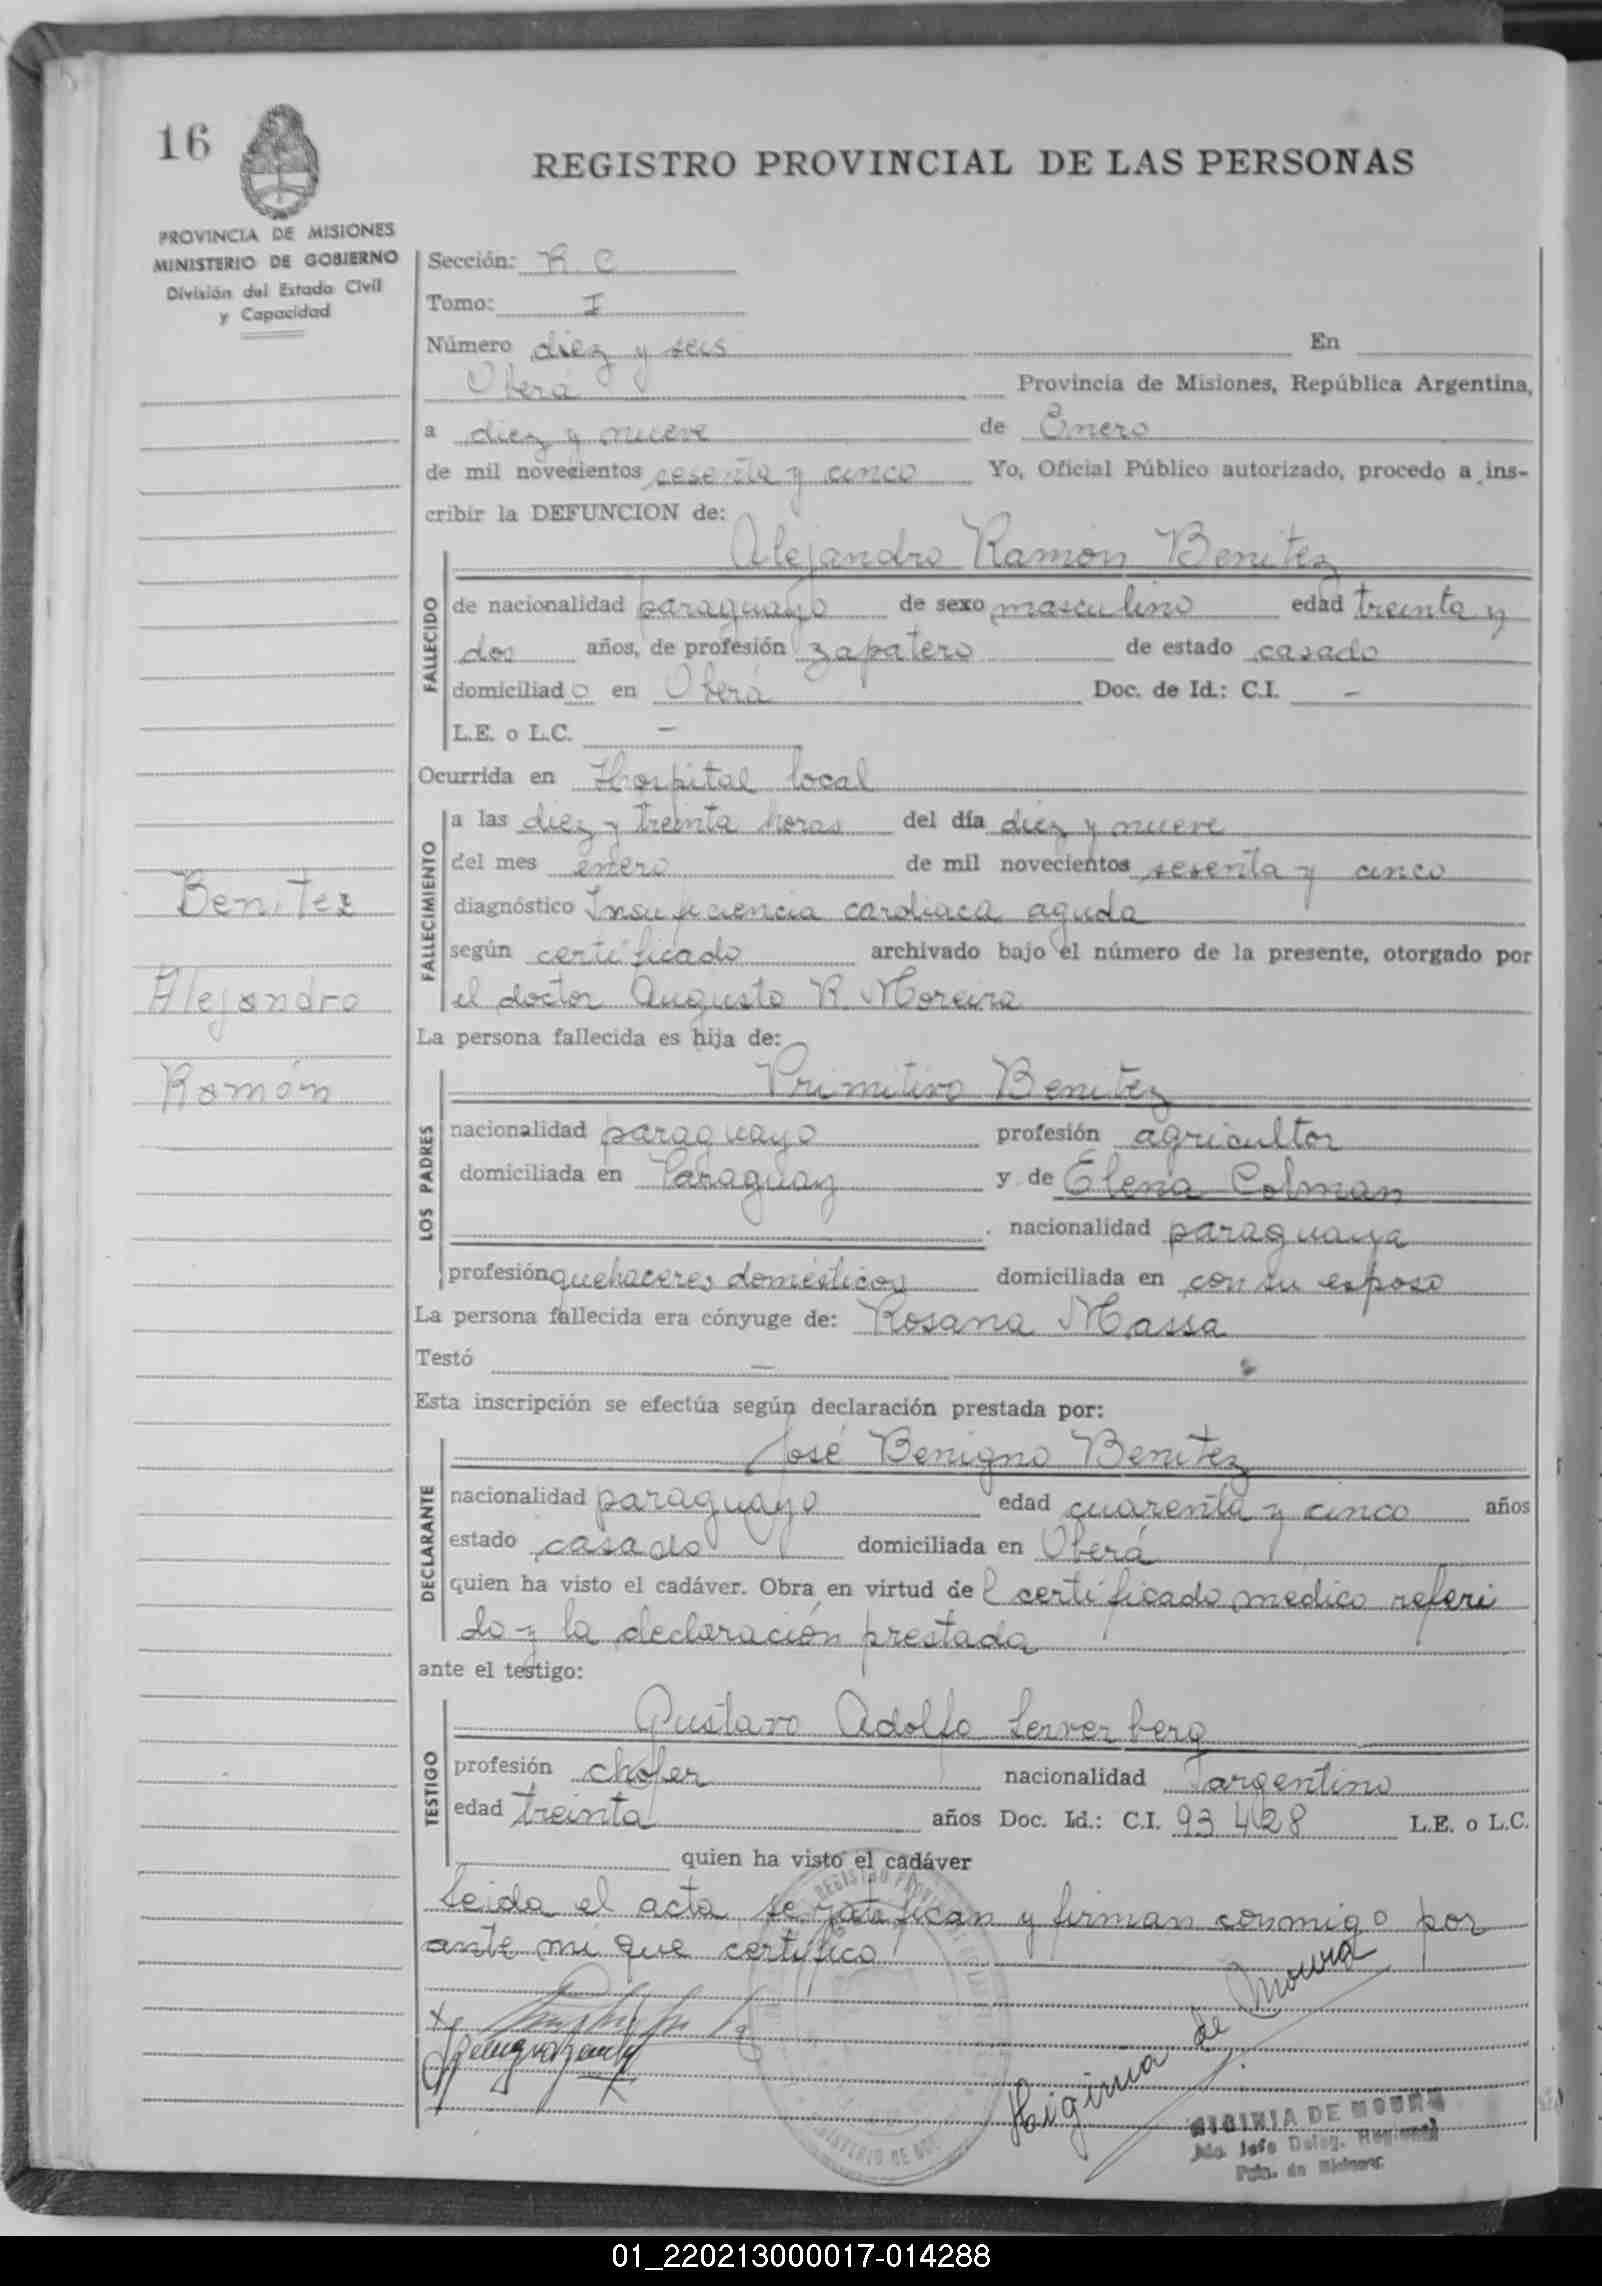 16
REGISTRO PROVINCIAL DE LAS PERSONAS
PROVINCIA DE MISIONES
MINISTERIO DE GOBIERNO
División del Estado Civil
y Capacidad
Sección: R. C
Tomo: I
Número diez y seis En
Oberá Provincia de Misiones, República Argentina,
a diez y nueve de Enero
de mil novecientos sesenta y cinco Yo, Oficial Público autorizado, procedo a ins-
cribir la DEFUNCION de:
Alejandro Ramón Benitez
FALLECIDO
de nacionalidad paraguayo de sexo masculino edad treinta y
dos años, de profesión zapatero de estado casado
domiciliado en Oberá Doc. de Id.: C.I. -
L.E. o L.C. -
Ocurrida en Hospital local
FALLECIMIENTO
a las diez y treinta horas del día diez y nueve
del mes enero de mil novecientos sesenta y cinco
diagnóstico Insuficiencia cardiaca aguda
según certificado archivado bajo el número de la presente, otorgado por
el doctor Augusto R. Moreira
Benitez
Alejandro
Ramón
La persona fallecida es hija de:
Primitivo Benitez
LOS PADRES
nacionalidad paraguayo profesión agricultor
domiciliada en Paraguay y de Elena Colman
nacionalidad paraguaya
profesión quehaceres domésticos domiciliada en con su esposo
La persona fallecida era cónyuge de: Rosana Massa
Testó -
Esta inscripción se efectúa según declaración prestada por:
José Benigno Benitez
DECLARANTE
nacionalidad paraguayo edad cuarenta y cinco años
estado casado domiciliada en Oberá
quien ha visto el cadáver. Obra en virtud del certificado médico referi
do y la declaración prestada
ante el testigo:
Gustavo Adolfo
TESTIGO
profesión chófer nacionalidad argentino
edad treinta años Doc. Id.: C.I. 93428 L.E. o L.C.
quien ha visto el cadáver
Leida el acta se ratifican y firman conmigo por
ante mi que certifico
Higinia de Moura
HIGINIA DE MOURA
Jefe Deleg. Regional
Pcia. de Misiones
01_220213000017-014288